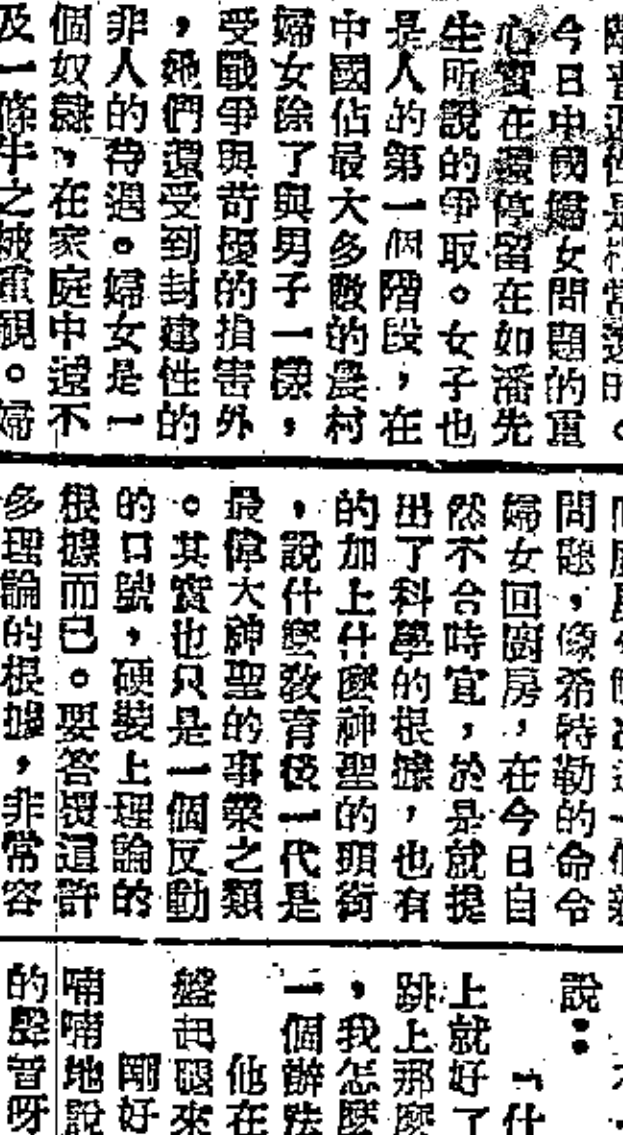 今日中國婦女問題的重
心實在還停留在如潘先
生所說的爭取。女子也
是人的第一個階段，在
中國佔最大多數的農村
婦女除了與男子一樣，
受戰爭與苛擾的損害外
，她們還受到封建性的
非人的待遇。婦女是一
個奴隸，在家庭中遠不
及一條牛之被重視。婦
問題，像希特勒的命令
婦女回廚房，在今日自
然不合時宜，於是就提
出了科學的根據，也有
的加上什麼神聖的頭銜
，說什麼教育後一代是
最偉大神聖的事業之類
。其實也只是一個反動
的口號，硬裝上理論的
根據而已。要答覆這許
多理論的根據，非常容
說：
「什
上就好了
跳上那麼
，我怎麼
一個辦法
他在
盤起腿來
剛好
喃喃地說
的聲音呀